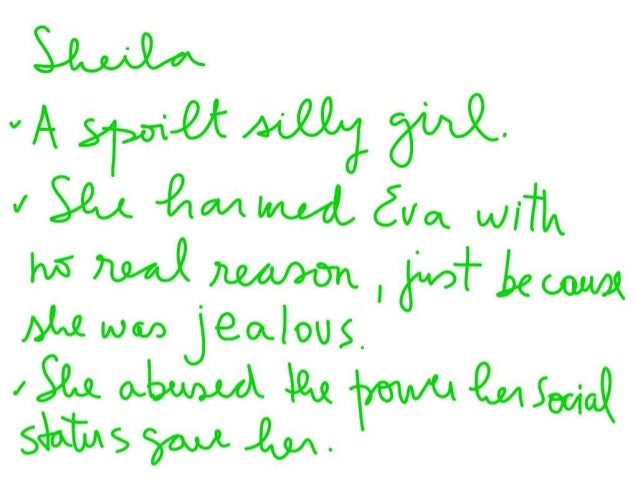 Sheila
✓ A spoilt silly girl.
✓ She harmed Eva with
no real reason, just because
she was jealous.
✓ She abused the power her social
status gave her.